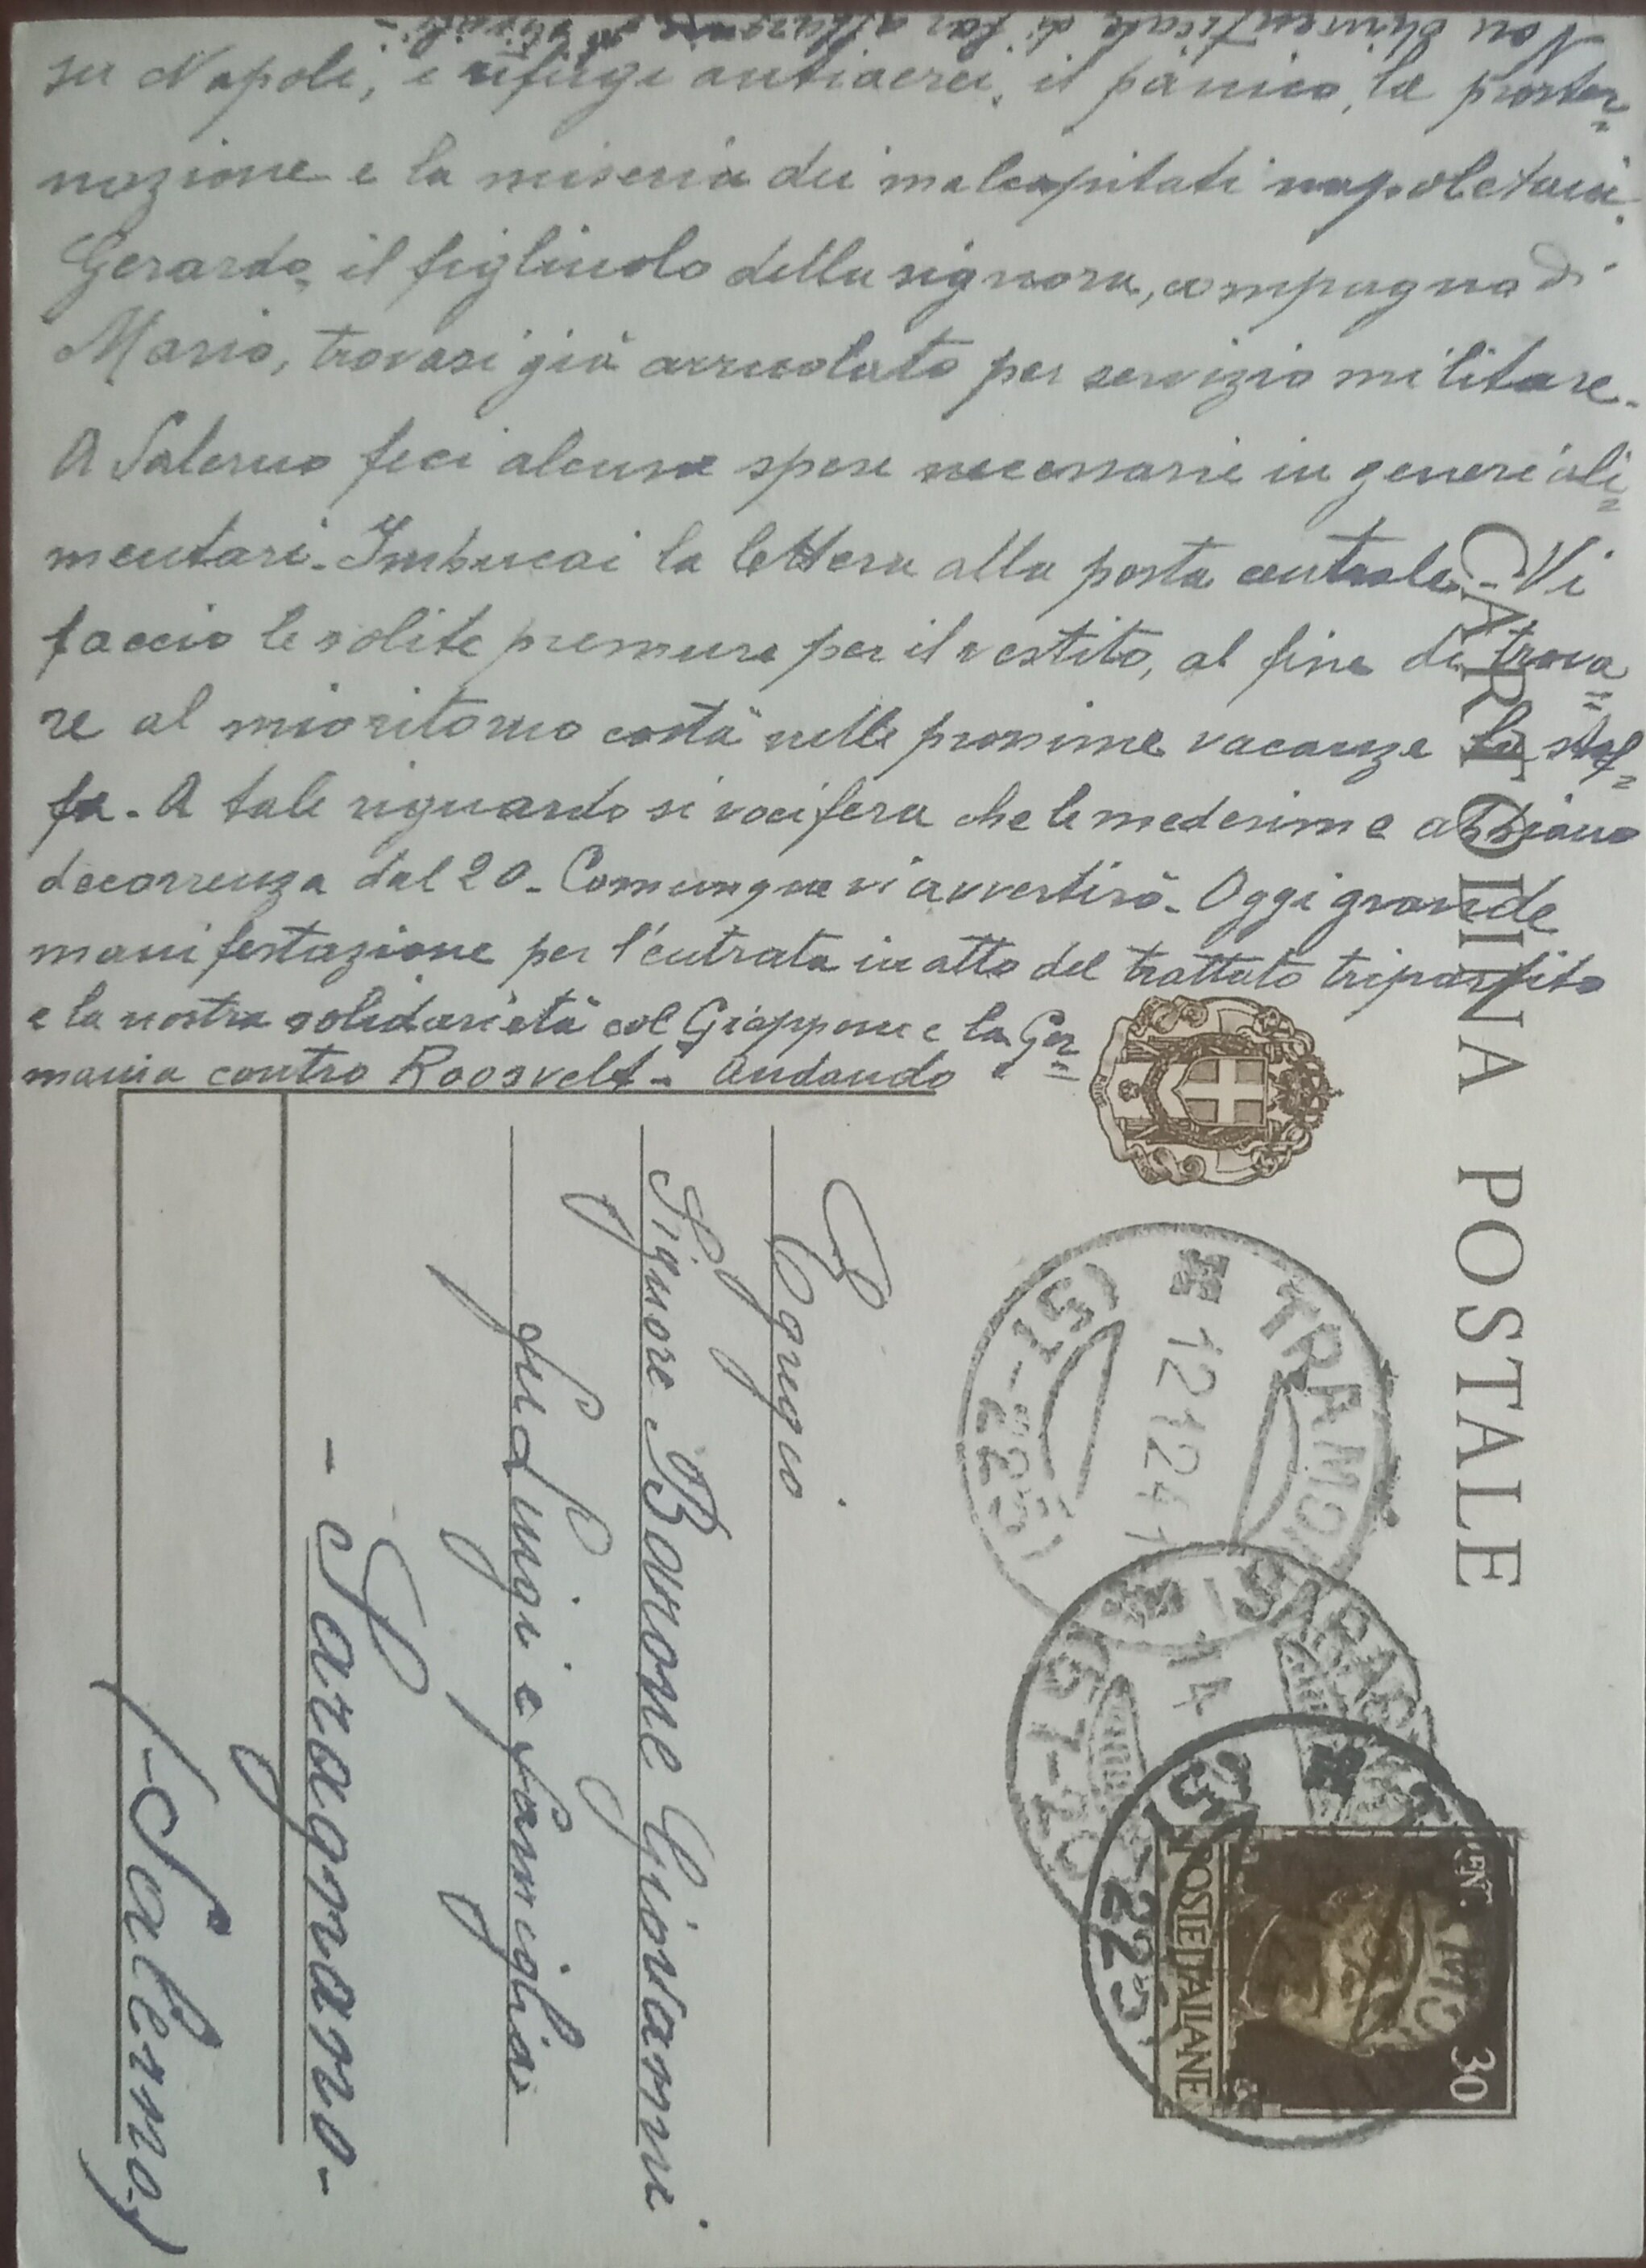 Non dimenticate di far
su Napoli, i rifugi antiaerei, il pànico, la proster=
nazione e la miseria dei malcapitati napoletani.
Gerardo, il figliuolo della signora, compagno di
Mario, trovasi già arruolato per servizio militare.
A Salerno feci alcune spese necessarie in generi ali=
mentari. Imbucai la lettera alla posta centrale. Vi
faccio le solite premure per il vestito, al fine di trova=
re al mio ritorno costà nelle prossime vacanze la stof=
fa. A tale riguardo si vocifera che le medesime abbiano
decorrenza dal 20. Comunque vi avvertirò. Oggi grande
manifestazione per l'entrata in atto del trattato tripartito
e la nostra solidarietà col Giappone e la Ger=
mania contro Roosvelt. Andando
CARTOLINA POSTALE
TRAMONTI
12 12 41
(57-225)
14
(57-20
(57-225)
CEN. 30
POSTE ITALIANE
Egregio
Signore Barone Giovanni
fu Luigi e famiglia
- Saragnano -
(- Salerno -)